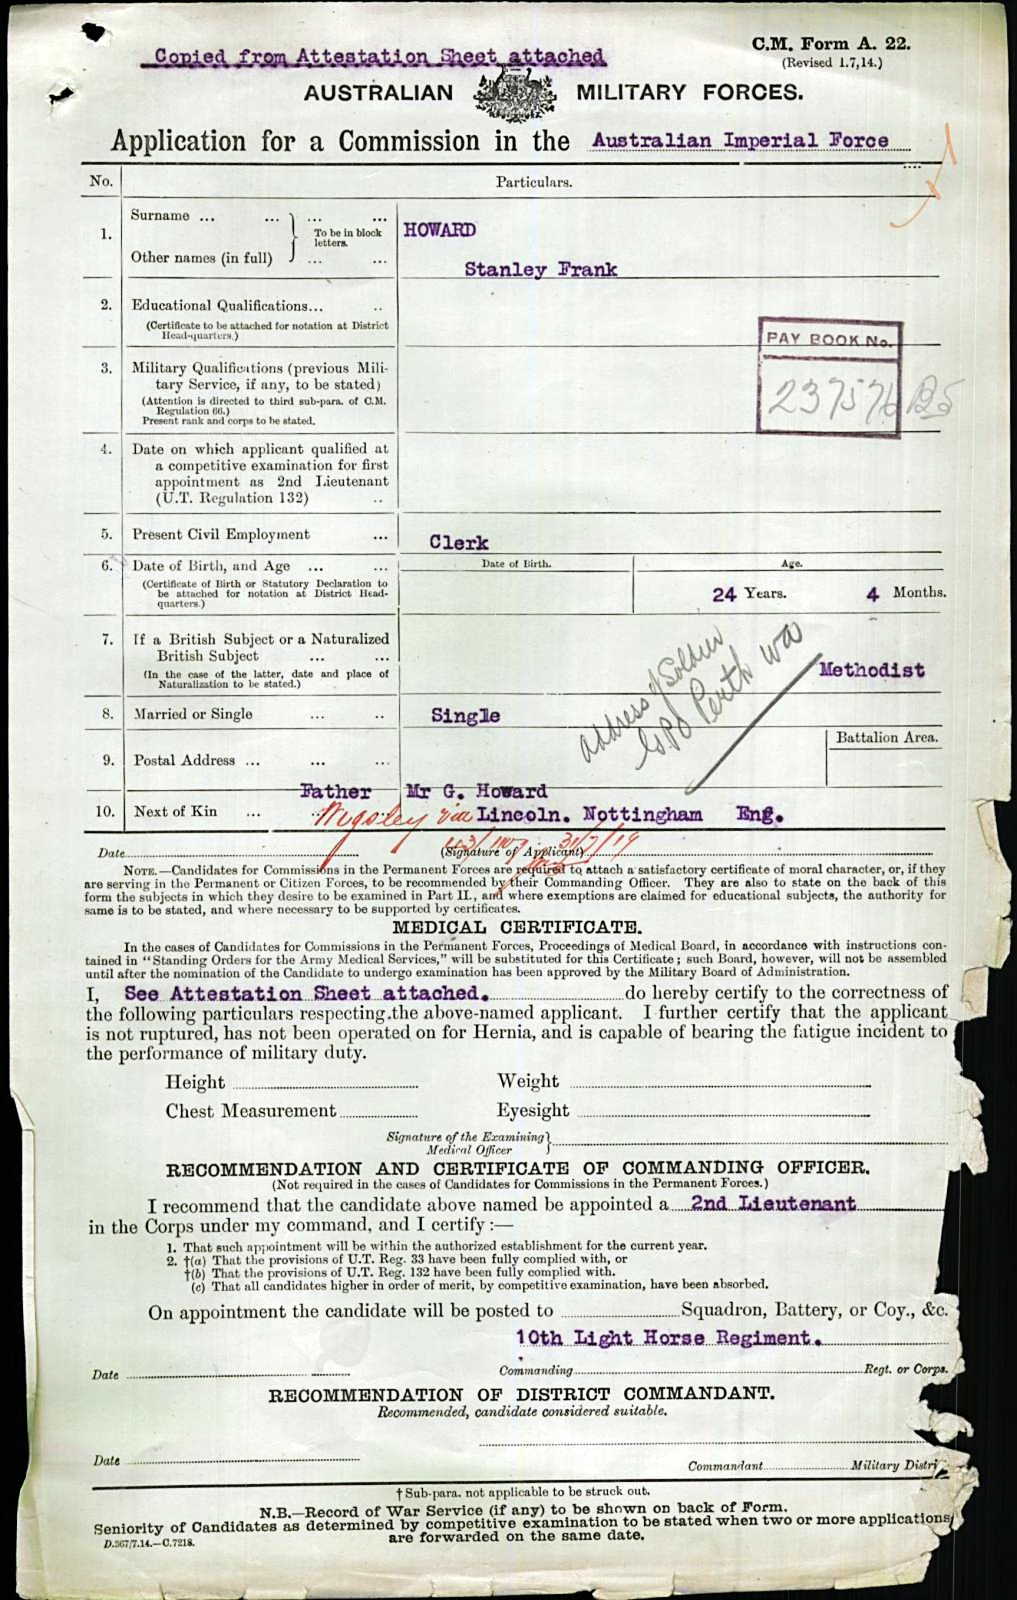 Copied from Attestation Sheet attached
C.M. Form A. 22.
(Revised 1.7,14.)
AUSTRALIAN MILITARY FORCES.
Application for a Commission in the Australian Imperial Force
No. Particulars.
1. Surname ... ... ... ...
To be in block letters.
Other names (in full) ... ...
HOWARD
Stanley Frank
2. Educational Qualifications... ..
(Certificate to be attached for notation at District
Head-quarters.)
PAY BOOK No.
237576 B5
3. Military Qualifications (previous Mili-
tary Service, if any, to be stated)
(Attention is directed to third sub-para. of C.M.
Regulation 66.)
Present rank and corps to be stated.
4. Date on which applicant qualified at
a competitive examination for first
appointment as 2nd Lieutenant
(U.T. Regulation 132) ..
5. Present Civil Employment ... Clerk
6. Date of Birth, and Age ... ... Date of Birth. Age.
(Certificate of Birth or Statutory Declaration to
be attached for notation at District Head-
quarters.)
24 Years. 4 Months.
7. If a British Subject or a Naturalized
British Subject ... ...
(In the case of the latter, date and place of
Naturalization to be stated.)
Methodist
address of Soldier
G.P.O Perth WA
8. Married or Single ... .. Single
Battalion Area.
9. Postal Address ... ... ...
Father Mr G. Howard
10. Next of Kin ... Wigsley via Lincoln. Nottingham Eng.
31/7/19
Date (Signature of Applicant)
NOTE.—Candidates for Commissions in the Permanent Forces are required to attach a satisfactory certificate of moral character, or, if they
are serving in the Permanent or Citizen Forces, to be recommended by their Commanding Officer. They are also to state on the back of this
form the subjects in which they desire to be examined in Part II., and where exemptions are claimed for educational subjects, the authority for
same is to be stated, and where necessary to be supported by certificates.
MEDICAL CERTIFICATE.
In the cases of Candidates for Commissions in the Permanent Forces, Proceedings of Medical Board, in accordance with instructions con-
tained in "Standing Orders for the Army Medical Services," will be substituted for this Certificate; such Board, however, will not be assembled
until after the nomination of the Candidate to undergo examination has been approved by the Military Board of Administration.
I, See Attestation Sheet attached. do hereby certify to the correctness of
the following particulars respecting the above-named applicant. I further certify that the applicant
is not ruptured, has not been operated on for Hernia, and is capable of bearing the fatigue incident to
the performance of military duty.
Height Weight
Chest Measurement Eyesight
Signature of the Examining
Medical Officer
RECOMMENDATION AND CERTIFICATE OF COMMANDING OFFICER.
(Not required in the cases of Candidates for Commissions in the Permanent Forces.)
I recommend that the candidate above named be appointed a 2nd Lieutenant
in the Corps under my command, and I certify:—
1. That such appointment will be within the authorized establishment for the current year.
2. †(a) That the provisions of U.T. Reg. 33 have been fully complied with, or
†(b) That the provisions of U.T. Reg. 132 have been fully complied with.
(c) That all candidates higher in order of merit, by competitive examination, have been absorbed.
On appointment the candidate will be posted to Squadron, Battery, or Coy., &c.
10th Light Horse Regiment.
Date Commanding Regt. or Corps.
RECOMMENDATION OF DISTRICT COMMANDANT.
Recommended, candidate considered suitable.
Date Commandant Military Distri
† Sub-para. not applicable to be struck out.
N.B.—Record of War Service (if any) to be shown on back of Form.
Seniority of Candidates as determined by competitive examination to be stated when two or more applications
are forwarded on the same date.
D.567/7.14.—C.7218.